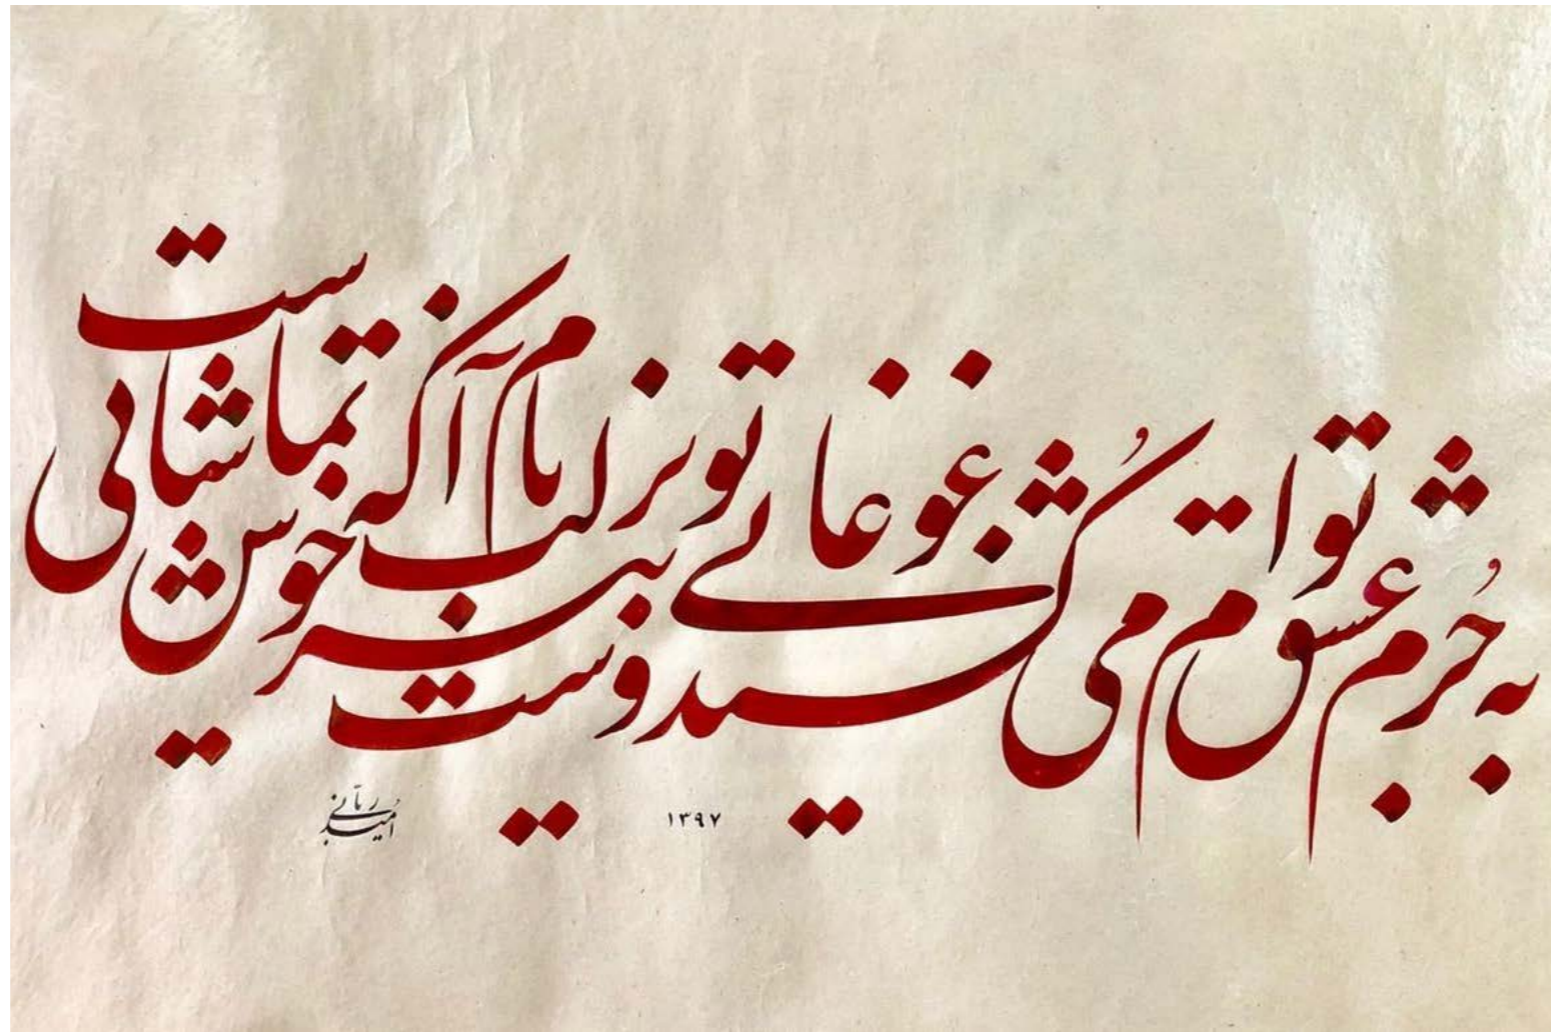 به جرم عشق توام می‌کشند و غوغایی‌ست
تو نیز بر لب بام آ که خوش تماشایی‌ست
۱۳۹۷
امید ربانی